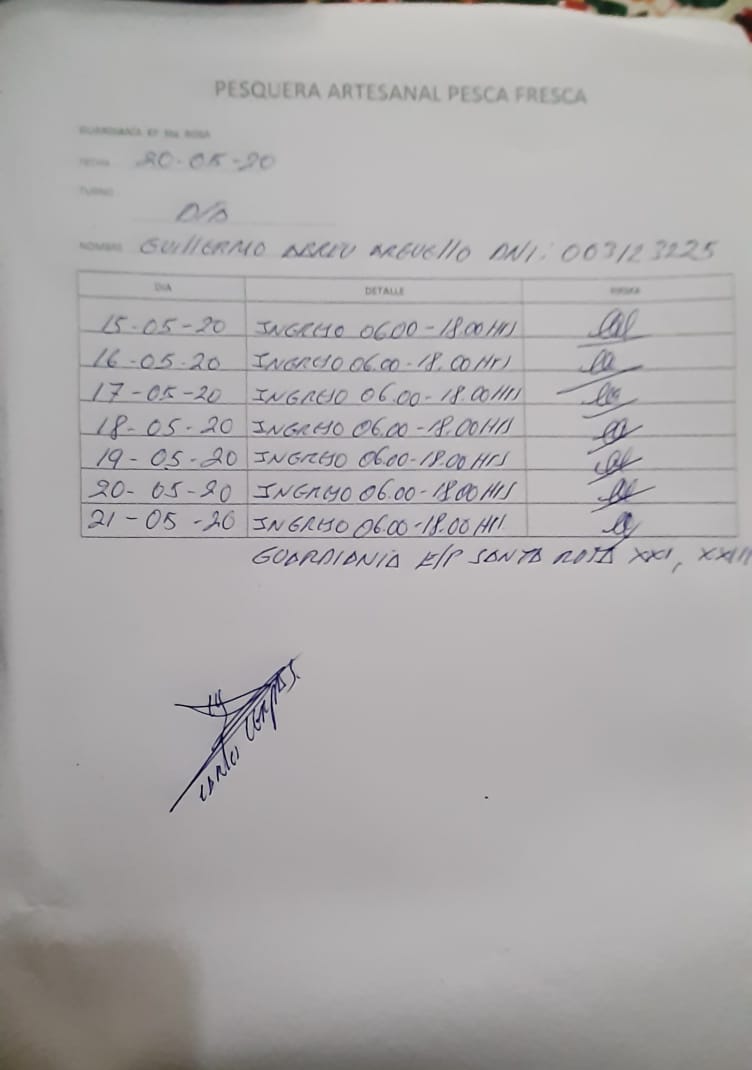 PESQUERA ARTESANAL PESCA FRESCA
GUARDIANIA EP Sta. ROSA
FECHA 20-05-20
TURNO
DIA
NOMBRE GUILLERMO ABREU ARGUELLO DNI: 003123225
DIA DETALLE FIRMA
15-05-20 INGRESO 06.00-18.00 Hrs
16-05-20 INGRESO 06.00-18.00 Hrs
17-05-20 INGRESO 06.00-18.00 Hrs
18-05-20 INGRESO 06.00-18.00 Hrs
19-05-20 INGRESO 06.00-18.00 Hrs
20-05-20 INGRESO 06.00-18.00 Hrs
21-05-20 INGRESO 06.00-18.00 Hrs
GUARDIANIA E/P SANTA ROSA XXI,
Carlos